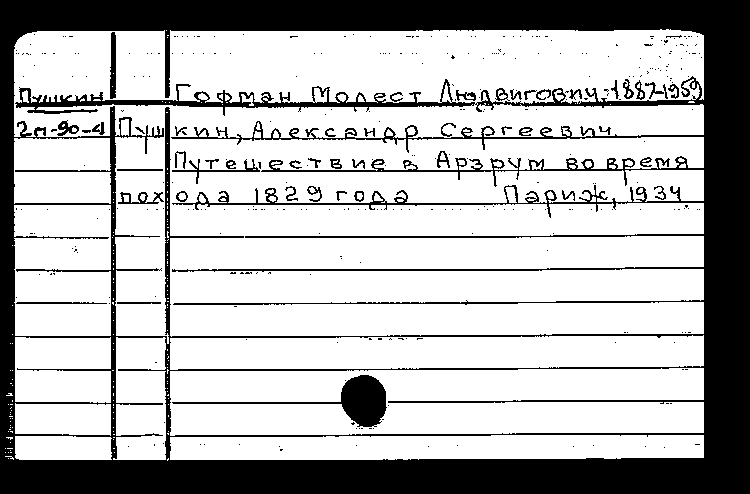 Пушкин Гофман, Модест Людвигович, 1887-1959
2м-90-4 Пушкин, Александр Сергеевич.
Путешествие в Арзрум во время
похода 1829 года Париж, 1934.